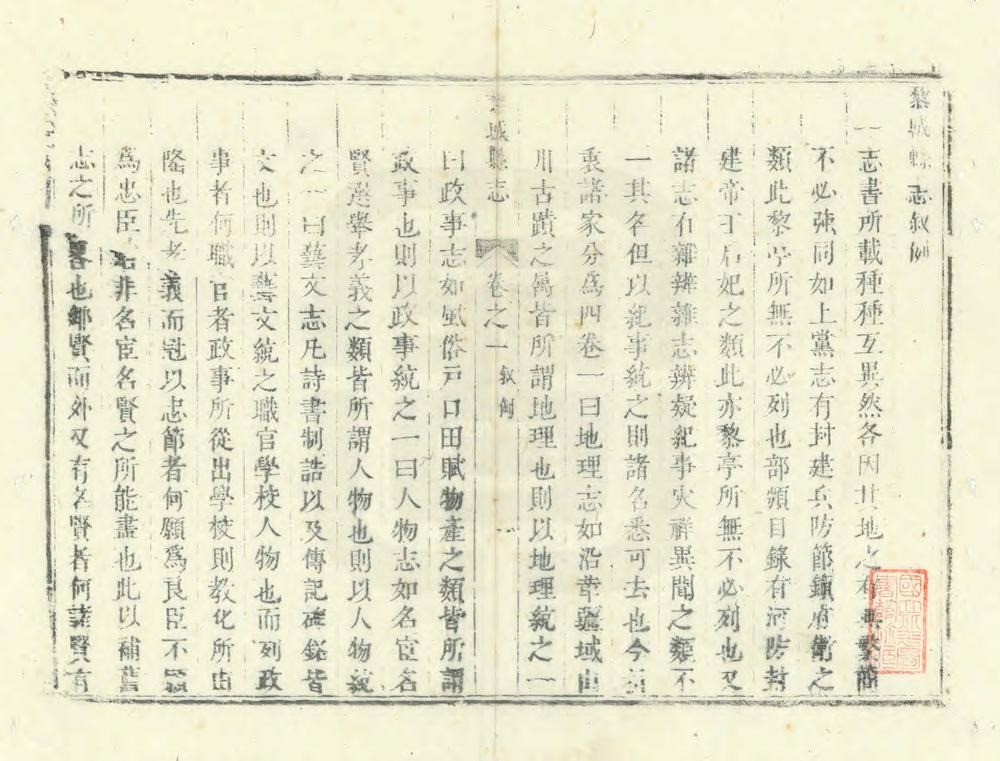 黎城縣志叙例
一志書所載種種互異然各因其地之有無繁簡
不必強同如上黨志有封建兵防節鎮府衛之
類此黎亭所無不必列也部類目錄有河防封
建帝王后妃之類此亦黎亭所無不必列也又
諸志有雜辨雜志辨疑紀事災祥異聞之類不
一其名但以紀事統之則諸名悉可去也今
裒諸家分爲四卷一曰地理志如沿革疆域山
川古蹟之屬皆所謂地理也則以地理統之一
城縣志 卷之一 叙例 一
曰政事志如風俗戸口田賦物產之類皆所謂
政事也則以政事統之一曰人物志如名宦名
賢選舉孝義之類皆所謂人物也則以人物統
之一曰藝文志凡詩書制誥以及傳記碑銘皆
文也則以藝文統之職官學校人物也而列政
事者何職官者政事所從出學校則教化所由
隆也先孝義而冠以忠節者何願爲良臣不願
爲忠臣 非名宦名賢之所能盡也此以補舊
志之所畧也鄉賢而外又有名賢者何諸賢有